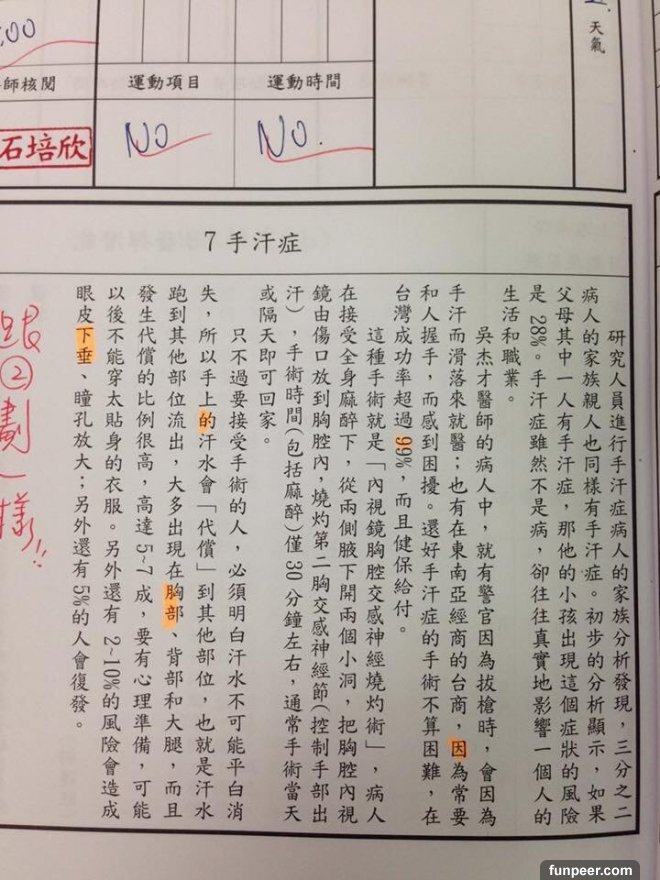 天氣
師核閱
運動項目
運動時間
石培欣
NO
NO.
7 手汗症
研究人員進行手汗症病人的家族分析發現，三分之二
病人的家族親人也同樣有手汗症。初步的分析顯示，如果
父母其中一人有手汗症，那他的小孩出現這個症狀的風險
是 28%。手汗症雖然不是病，卻往往真實地影響一個人的
生活和職業。
吳杰才醫師的病人中，就有警官因為拔槍時，會因為
手汗而滑落來就醫；也有在東南亞經商的台商，因為常要
和人握手，而感到困擾。還好手汗症的手術不算困難，在
台灣成功率超過 99%，而且健保給付。
這種手術就是「內視鏡胸腔交感神經燒灼術」，病人
在接受全身麻醉下，從兩側腋下開兩個小洞，把胸腔內視
鏡由傷口放到胸腔內，燒灼第二胸交感神經節(控制手部出
汗)，手術時間(包括麻醉)僅 30 分鐘左右，通常手術當天
或隔天即可回家。
只不過要接受手術的人，必須明白汗水不可能平白消
失，所以手上的汗水會「代償」到其他部位，也就是汗水
跑到其他部位流出，大多出現在胸部、背部和大腿，而且
發生代償的比例很高，高達 5~7 成，要有心理準備，可能
以後不能穿太貼身的衣服。另外還有 2~10%的風險會造成
眼皮下垂、瞳孔放大；另外還有 5%的人會復發。
跟②劃一樣!!
funpeer.com